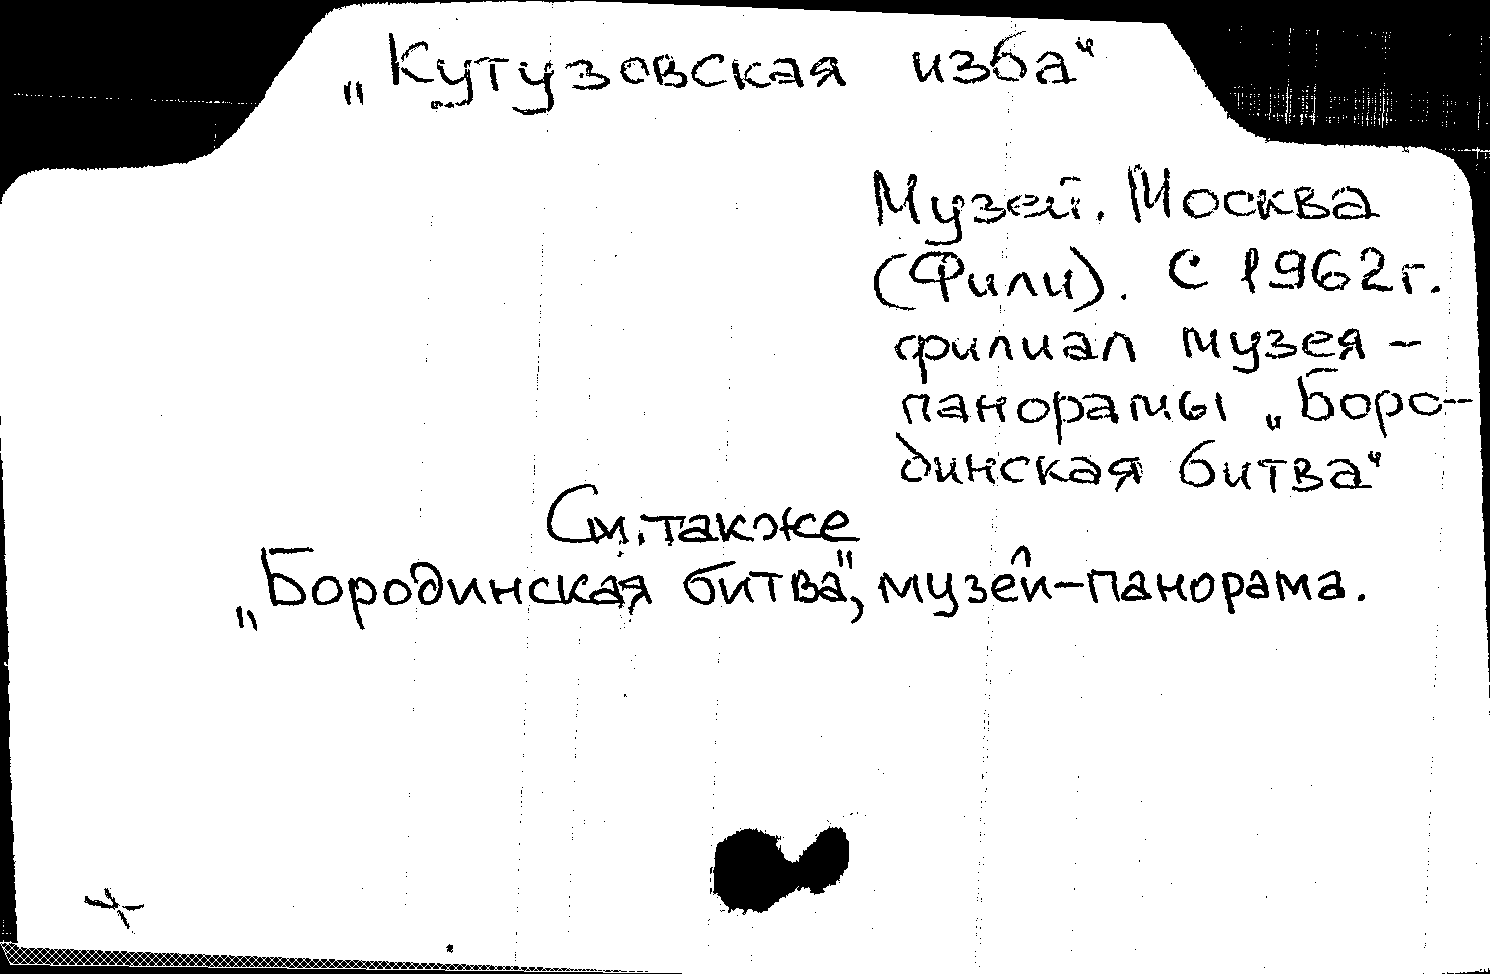 „Кутузовская изба“
Музей. Москва
(Фили). С 1962 г.
филиал музея-
панорамы „Боро-
динская битва“
См. также
„Бородинская битва", музей-панорама.